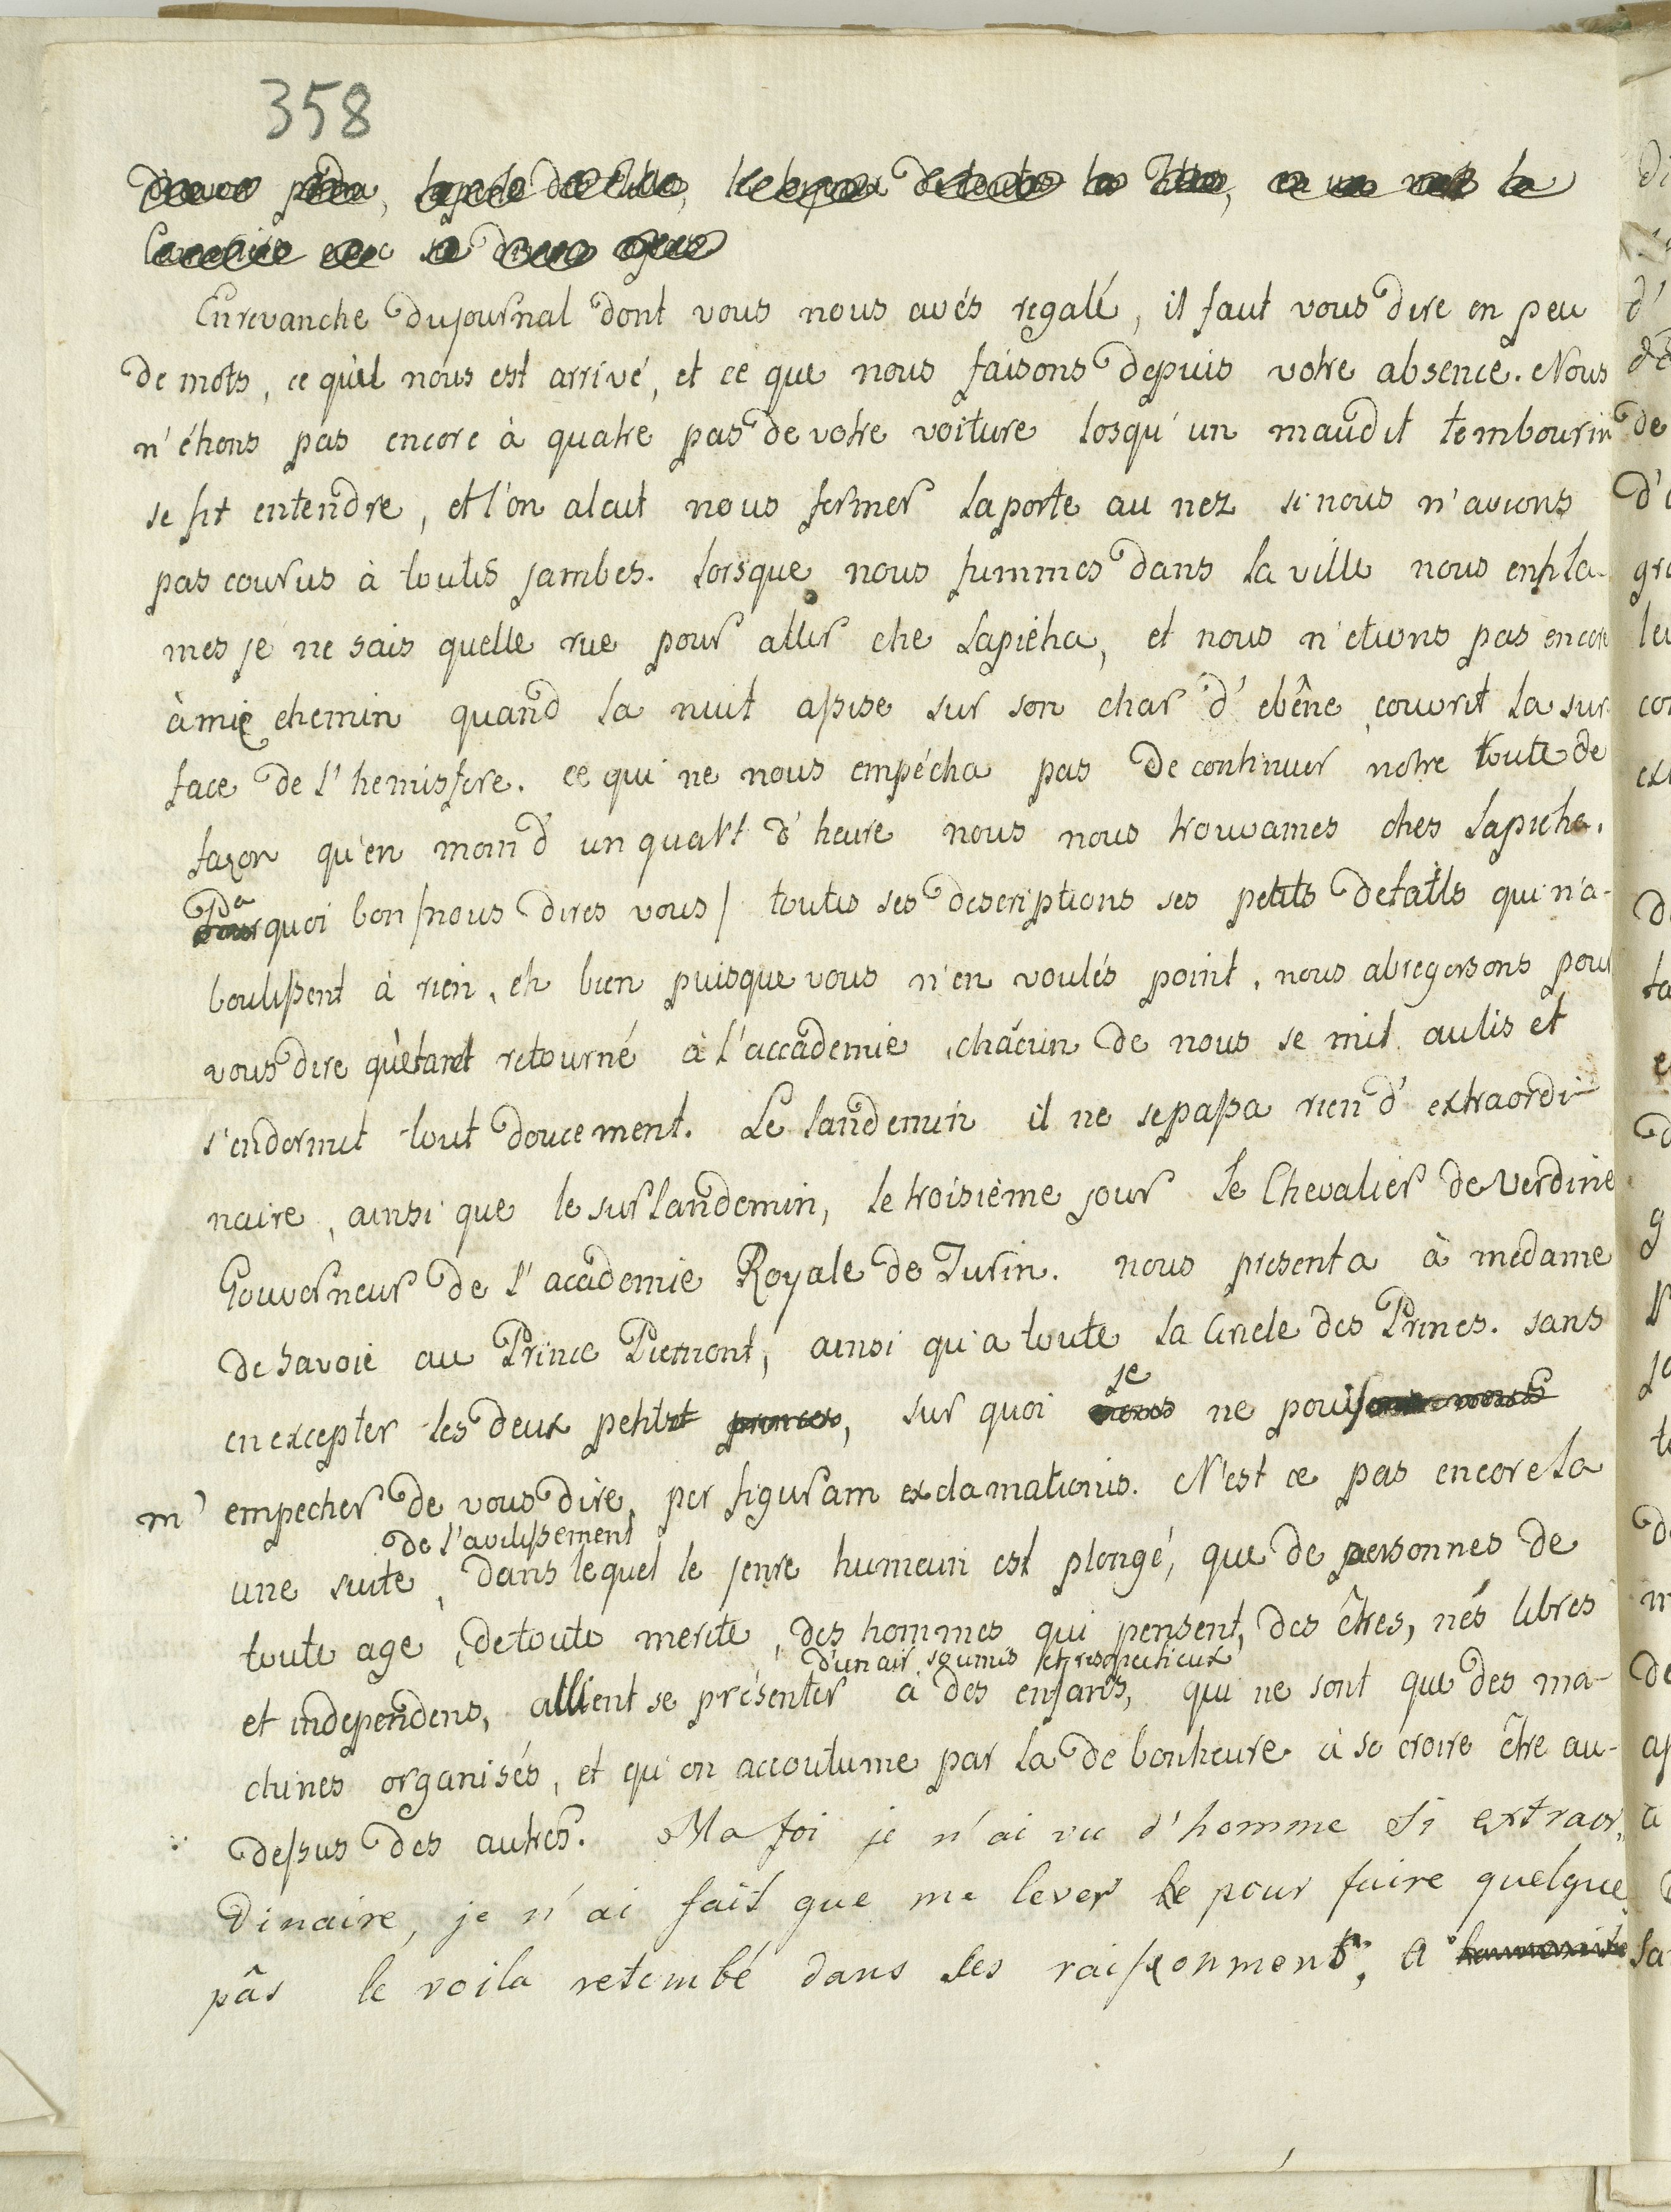 358
En revanche du journal dont vous nous avés regalé, il faut vous dire en peu
de mots, ce qu'il nous est arrivé, et ce que nous faisons depuis votre absence. Nous
n'étions pas encore à quatre pas de votre voiture losqu'un maudit tembourin
se fit entendre, et l'on alait nous fermer la porte au nez si nous n'avions
pas courus à toutes jambes. lorsque nous fummes dans la ville nous enfila-
mes je ne sais quelle rue pour aller che Sapieha, et nous n'etions pas encore
à mie chemin quand la nuit assise sur son char d'ebêne couvrit la sur
face de l'hemisfere. ce qui ne nous empécha pas de continuer notre route de
façon qu'en moin d'un quart d'heure nous nous trouvames ches Sapieha.
quoi bon /nous dires vous/ toutes ses descriptions ses petits details qui n'a-
boutissent à rien, eh bien puisque vous n'en voulés point, nous abregerons pour
vous dire qu'etant retourné à l'accademie, chacun de nous se mit au lis et
s'endormit tout doucement. Le landemin il ne se passa rien d'extraordi-
naire, ainsi que le surlandemin, le troisième jour le Chevalier de Verdine
Gouverneur de l'academie Royale de Turin. nous presenta à médame
de Savoie au Prince Piemont, ainsi qu'a toute la Circle des Princs. sans
en excepter les deux petits princes, sur quoi je ne pouis
m'empecher de vous dire, per figuram exclamationis. N'est ce pas encore la
de l'avilissement
une suite, dans lequel le jenre humain est plongé, que de personnes de
toute age, de toute merite, des hommes qui pensent, des êtres, nés libres
d'un air soumis et respectieux
et independens, allient se présenter à des enfans, qui ne sont que des ma-
chines organisés, et qu'on accoutume par la de bonheure à se croire être au-
dessus des autres. Ma foi je n'ai vu d'homme si extraor„
dinaire, je n'ai fait que me lever pour faire quelque
pâs le voila retombé dans les raissonments, A